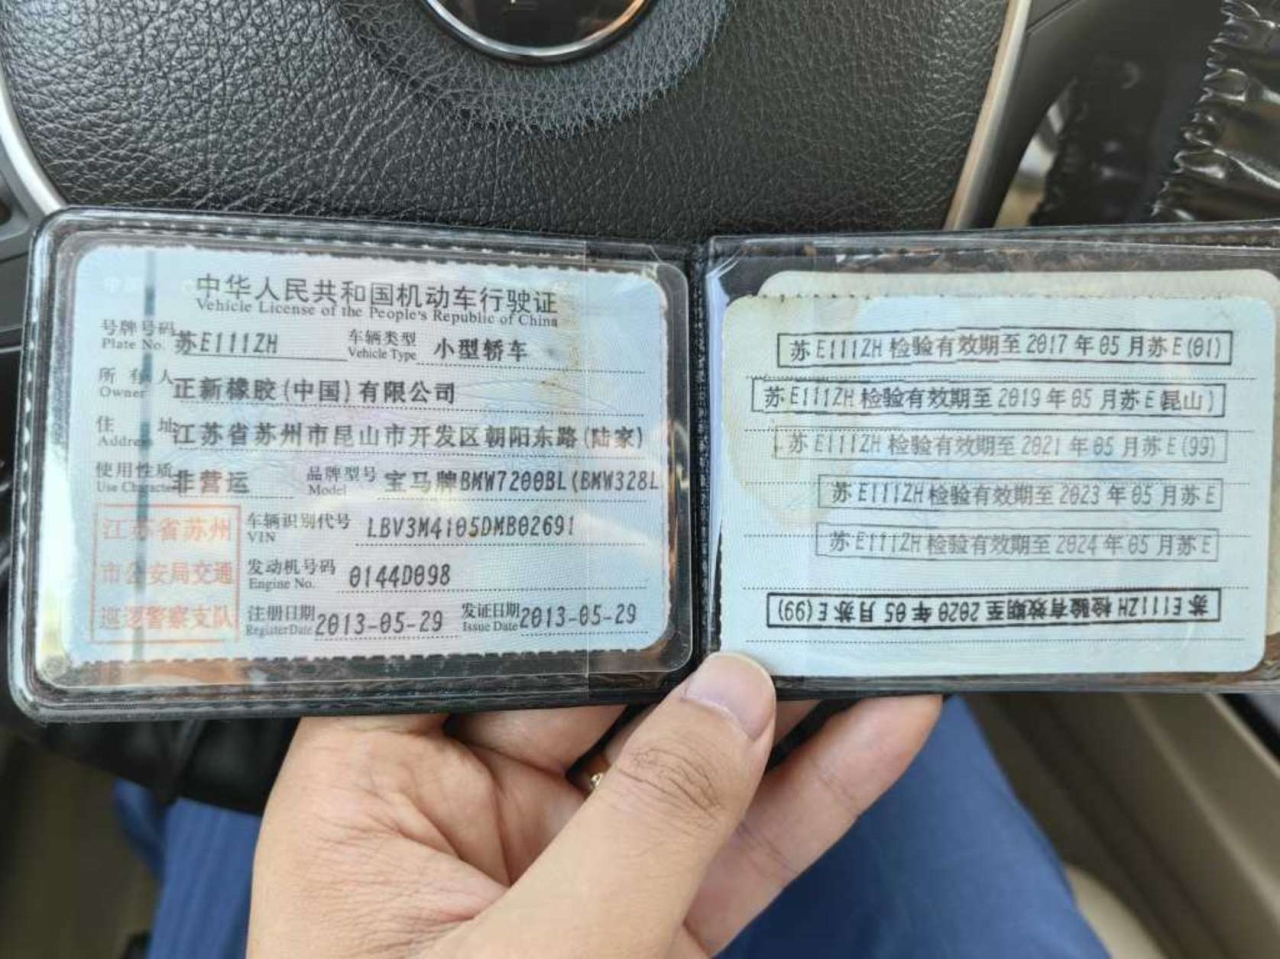 中华人民共和国机动车行驶证
Vehicle License of the People's Republic of China
号牌号码 苏E111ZH 车辆类型 小型轿车
Plate No. Vehicle Type
所有人 正新橡胶(中国)有限公司
Owner
住址 江苏省苏州市昆山市开发区朝阳东路(陆家)
Address
使用性质 非营运 品牌型号 宝马牌BMW7200BL(BMW328L
Use Character Model
江苏省苏州
市公安局交通
巡逻警察支队
车辆识别代号 LBV3M4105DMB02691
VIN
发动机号码 0144D098
Engine No.
注册日期 2013-05-29 发证日期 2013-05-29
Register Date Issue Date
苏E111ZH检验有效期至2017年05月苏E(01)
苏E111ZH检验有效期至2019年05月苏E(昆山)
苏E111ZH检验有效期至2021年05月苏E(99)
苏E111ZH检验有效期至2023年05月苏E
苏E111ZH检验有效期至2024年05月苏E
苏E111ZH检验有效期至2020年05月苏E(99)